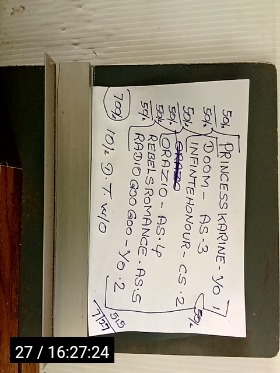 50/. PRINCESS KARINE - YO. 1
50/. DOOM - AS. 3
50/. INFINTE HONOUR - CS. 2
50/. ORAZIO - AS. 4
50/. REBELS ROMANCE - AS. 5
50/. RADIO GOO GOO - YO. 2
50/.
700/. 10/. D T W/O
515
27 / 16:27:24